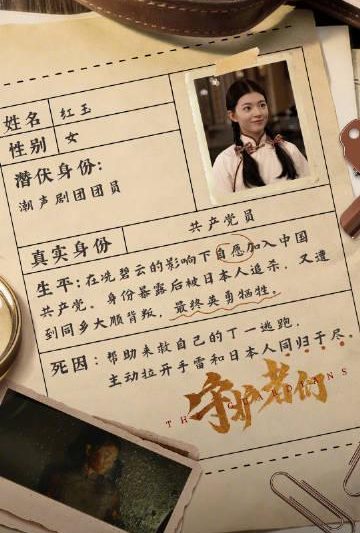 姓名 红玉
性别 女
潜伏身份:
潮声剧团团员
真实身份 共产党员
生平:在冼碧云的影响下自愿加入中国
共产党。身份暴露后被日本人追杀,又遭
到同乡大顺背叛,最终英勇牺牲。
死因:帮助来救自己的丁一逃跑,
主动拉开手雷和日本人同归于尽。
守护者们